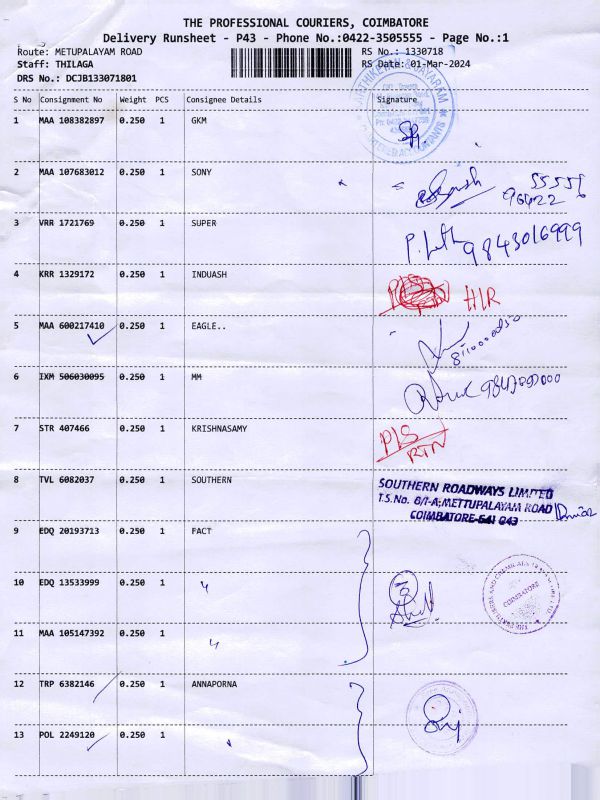 THE PROFESSIONAL COURIERS, COIMBATORE
Delivery Runsheet - P43 - Phone No.:0422-3505555 - Page No.:1
Route: METUPALAYAM ROAD
RS No.: 1330718
Staff: THILAGA
RS Date: 01-Mar-2024
DRS No.: DCJB133071801
S No Consignment No Weight PCS Consignee Details Signature
1 MAA 108382897 0.250 1 GKM
2 MAA 107683012 0.250 1 SONY
3 VRR 1721769 0.250 1 SUPER
9843016999
4 KRR 1329172 0.250 1 INDUASH
HIR
5 MAA 600217410 0.250 1 EAGLE..
6 IXM 506030095 0.250 1 MM
7 STR 407466 0.250 1 KRISHNASAMY
PIS
RTN
8 TVL 6082037 0.250 1 SOUTHERN
SOUTHERN ROADWAYS LIMITED
T.S.No. 8/1-A, METTUPALAYAM ROAD
COIMBATORE-641 043
9 EDQ 20193713 0.250 1 FACT
10 EDQ 13533999 0.250 1 〃
COIMBATORE
11 MAA 105147392 0.250 1 〃
12 TRP 6382146 0.250 1 ANNAPORNA
13 POL 2249120 0.250 1